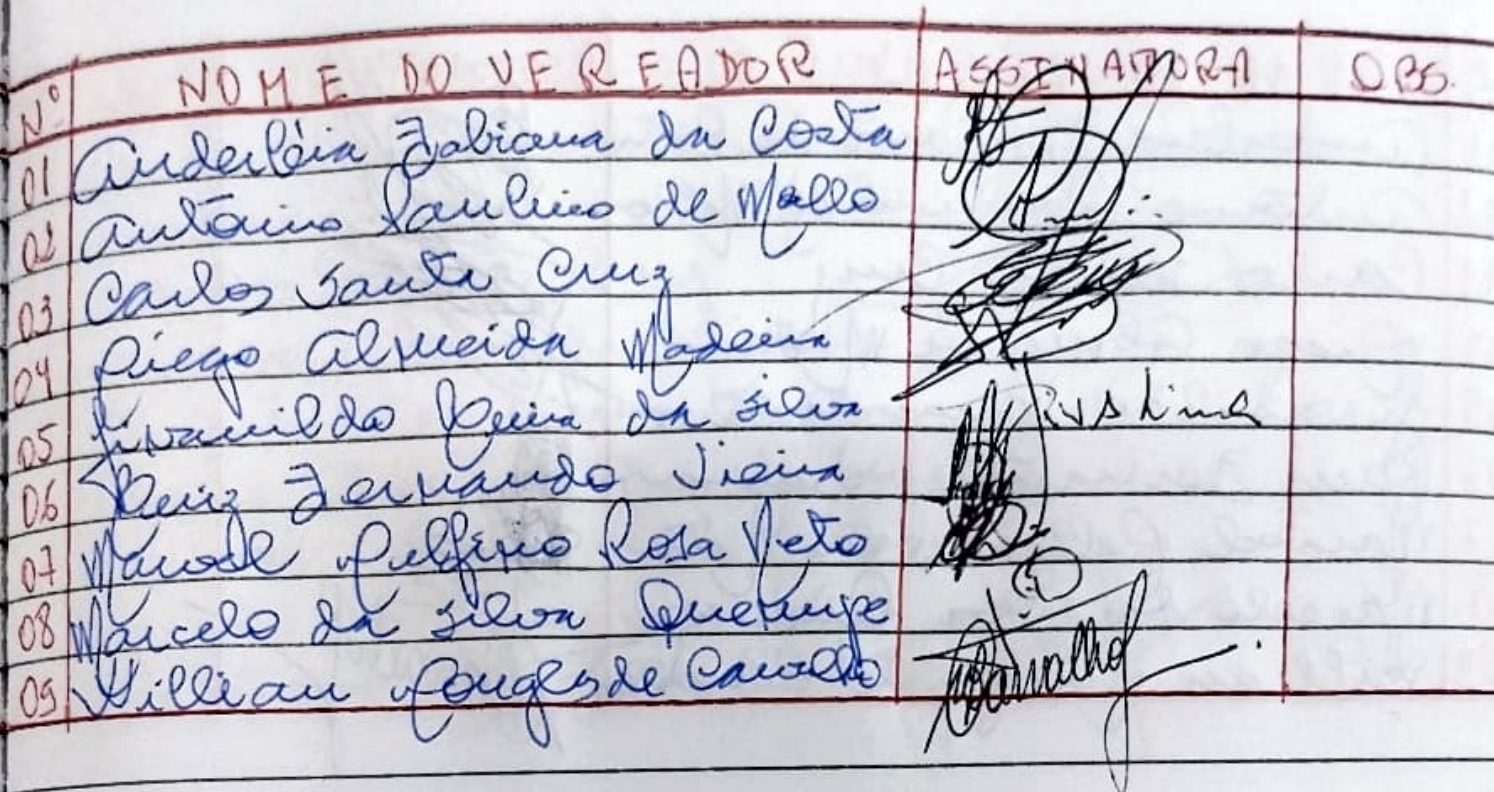 Nº NOME DO VEREADOR ASSINATURA OBS.
01 Anderléia Fabiana da Costa
02 Antônio Paulino de Mello
03 Carlos Santa Cruz
04 Diego Almeida Madeira
05 da Silva
06 Luiz Fernando Vieira
07 Manoel Delfino Rosa Neto
08 Marcelo da Silva
09 Willian Douglas de Carvalho Carvalho